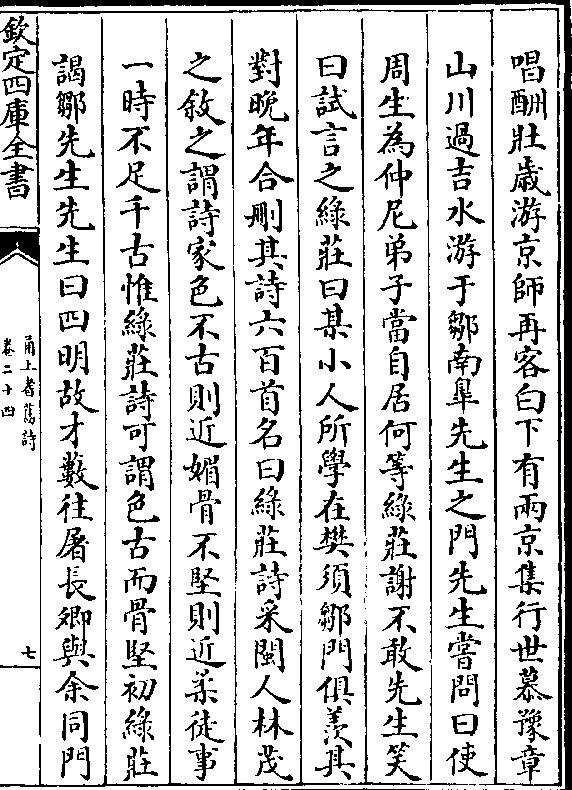 唱酬壯歲游京師再客白下有兩京集行世慕豫章
山川過吉水游于鄒南臯先生之門先生嘗問曰使
周生為仲尼弟子當自居何等綠莊謝不敢先生笑
曰試言之綠莊曰某小人所學在樊須鄒門俱羨其
對晚年合刪其詩六百首名曰綠莊詩采閩人林茂
之敘之謂詩家色不古則近媚骨不堅則近柔徒事
一時不足千古惟綠莊詩可謂色古而骨堅初綠莊
謁鄒先生先生曰四明故才藪往屠長卿與余同門
欽定四庫全書
甬上耆舊詩
卷二十四
七